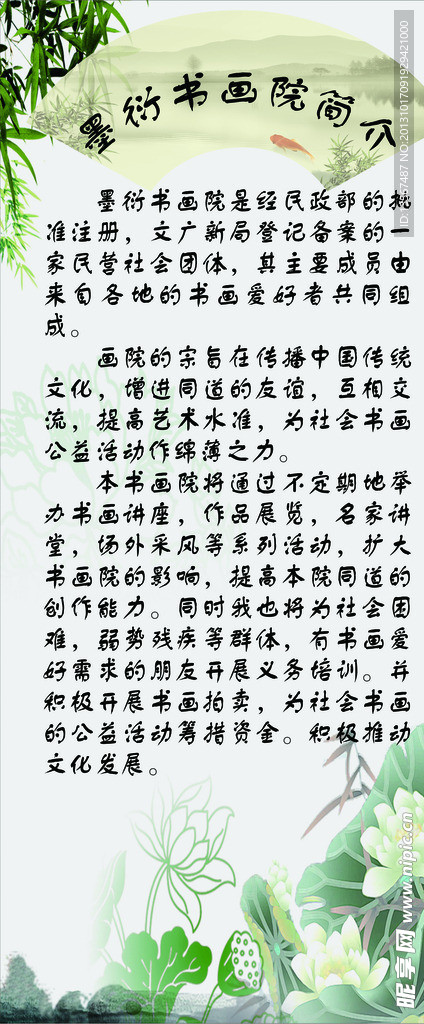 墨衍书画院简介
墨衍书画院是经民政部的批
准注册，文广新局登记备案的一
家民营社会团体，其主要成员由
来自各地的书画爱好者共同组
成。
画院的宗旨在传播中国传统
文化，增进同道的友谊，互相交
流，提高艺术水准，为社会书画
公益活动作绵薄之力。
本书画院将通过不定期地举
办书画讲座，作品展览，名家讲
堂，场外采风等系列活动，扩大
书画院的影响，提高本院同道的
创作能力。同时我也将为社会困
难，弱势残疾等群体，有书画爱
好需求的朋友开展义务培训。并
积极开展书画拍卖，为社会书画
的公益活动筹措资金。积极推动
文化发展。
昵享网 www.nipic.cn